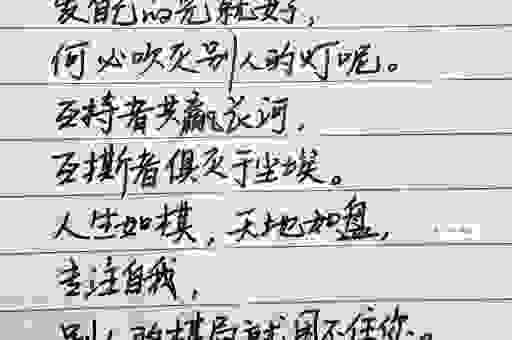 发自己的光就好,
何必吹灭别人的灯呢。
互持者共赢长河,
互撕者俱灭于尘埃。
人生如棋,天地如盘,
专注自我,
别人的棋局就困不住你。